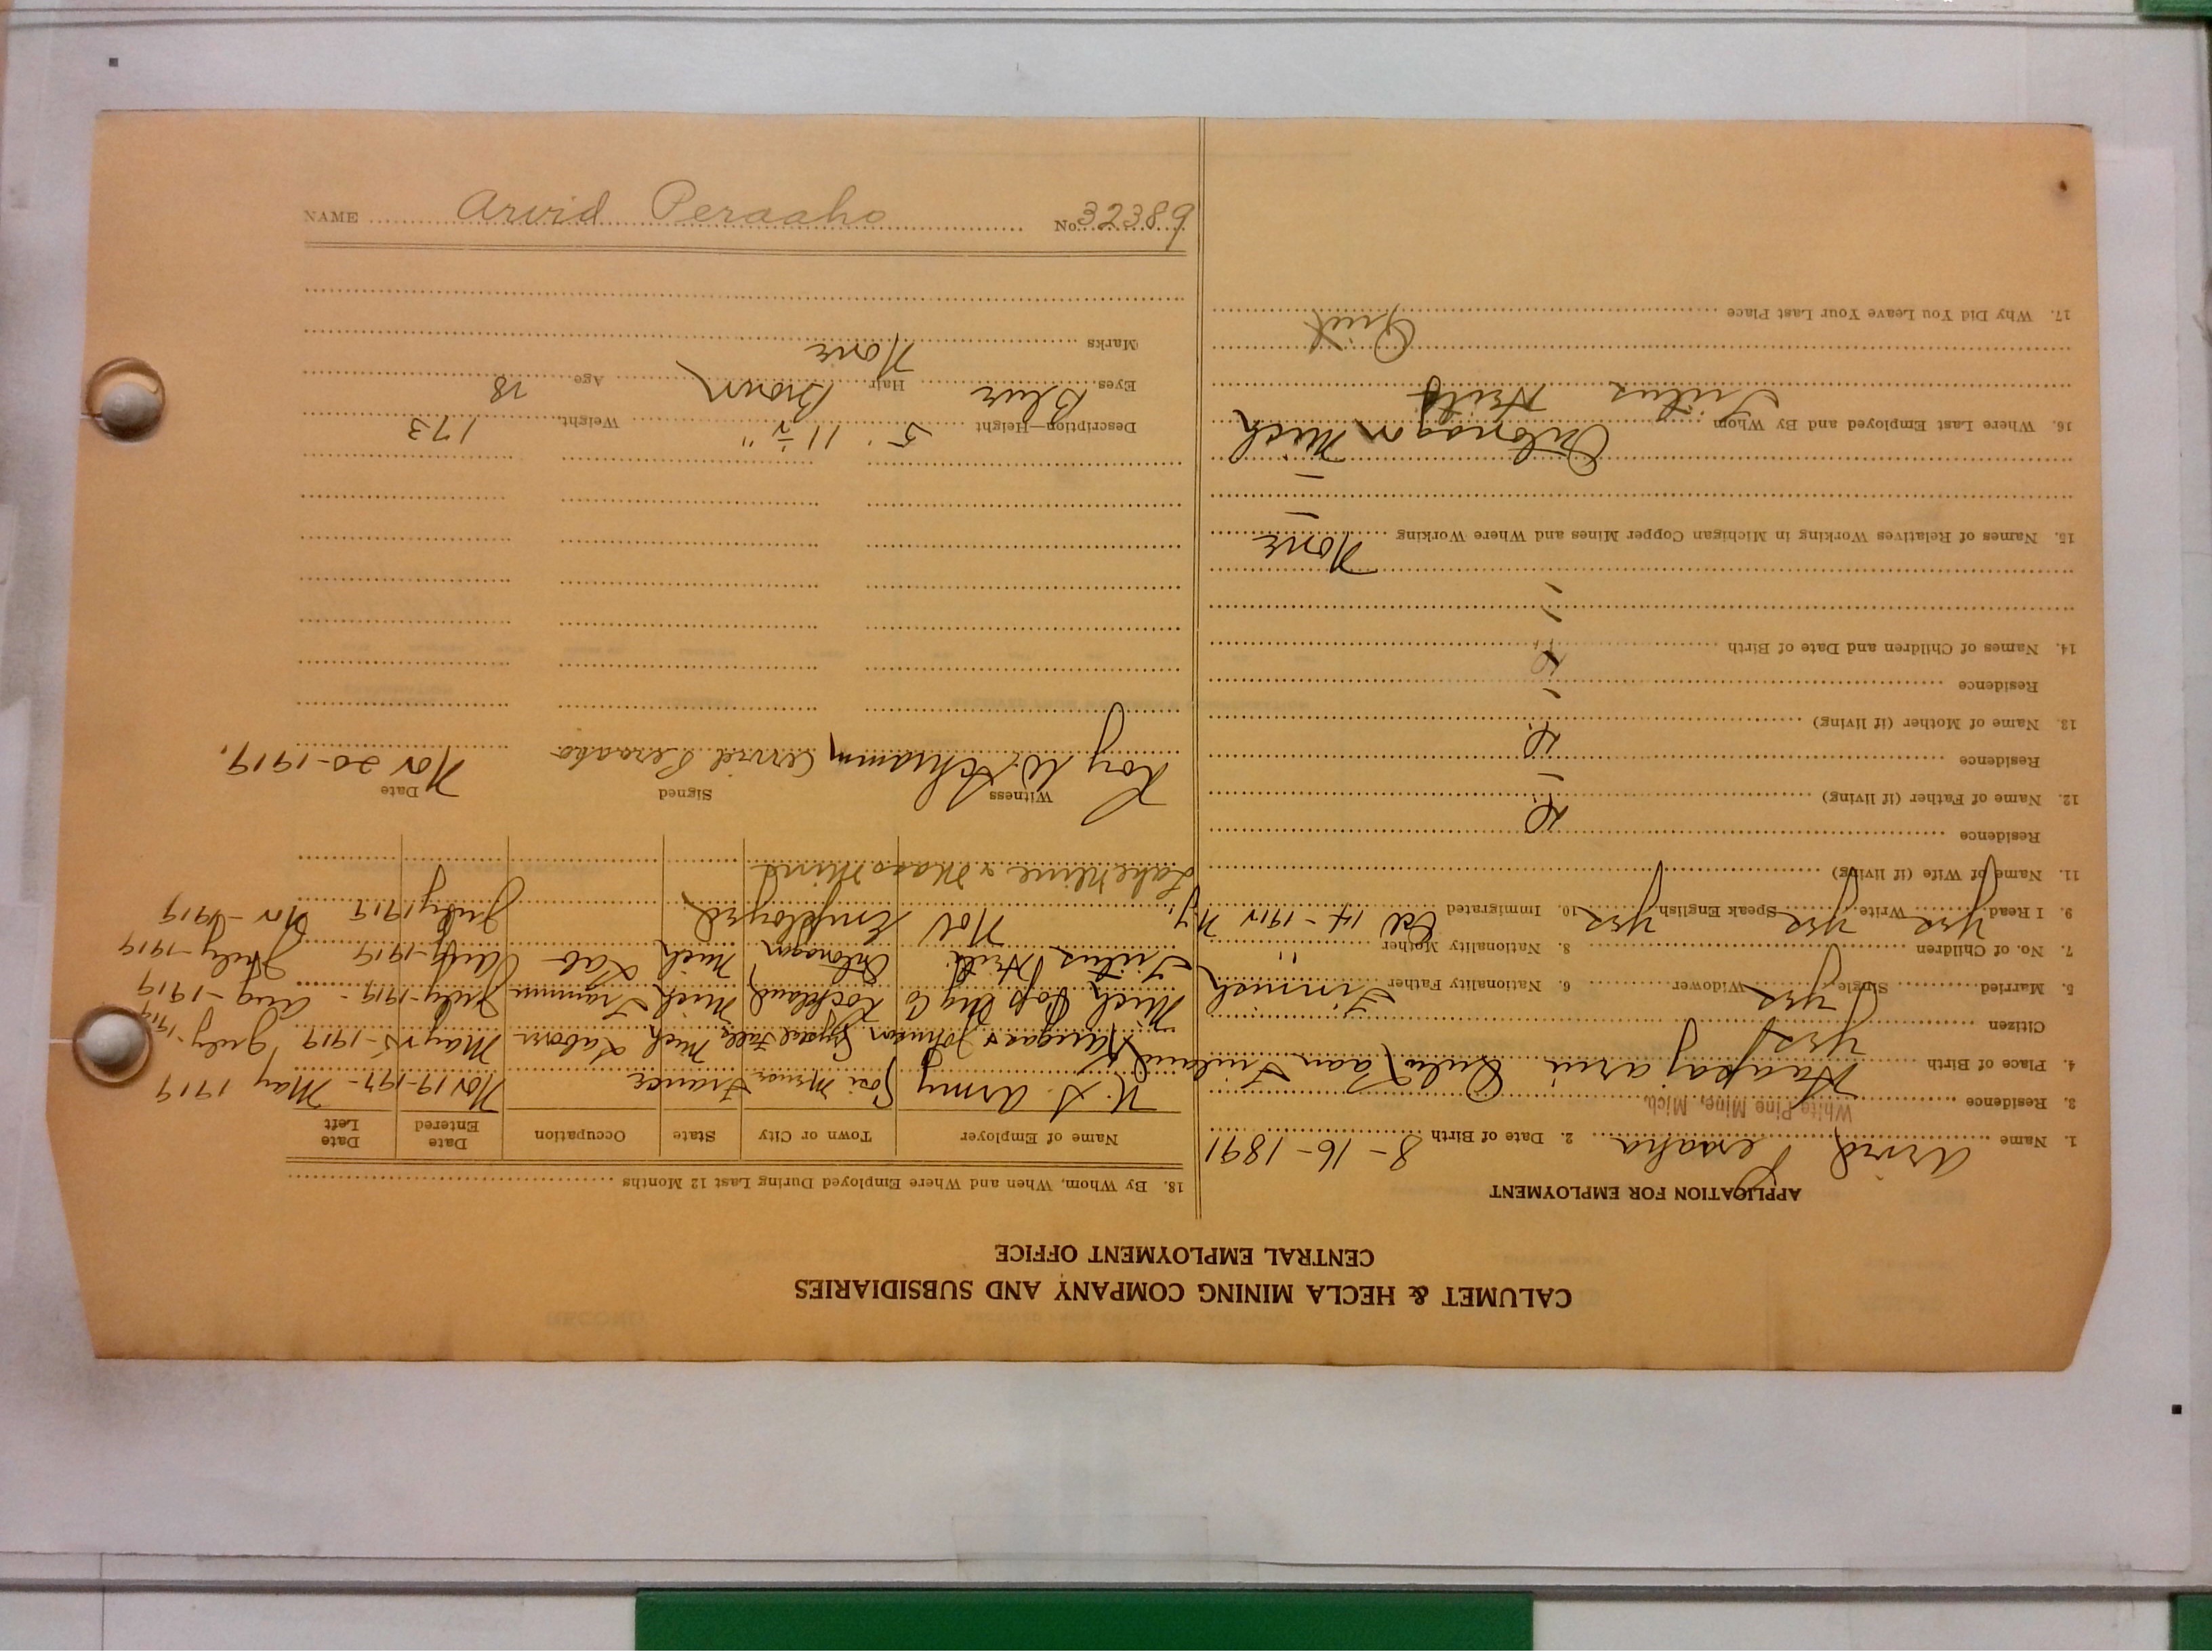 CALUMET & HECLA MINING COMPANY AND SUBSIDIARIES
CENTRAL EMPLOYMENT OFFICE
APPLICATION FOR EMPLOYMENT
1. Name Arvid Peraaho 2. Date of Birth 8-16-1891
White Pine Mine, Mich.
3. Residence
4. Place of Birth Haapajarvi Finland
Citizen yes
5. Married Single yes Widower 6. Nationality Father Finnish
7. No. of Children 8. Nationality Mother "
9. I Read yes Write yes Speak English yes 10. Immigrated Oct 14-1912 N.Y.
11. Name of Wife (if living)
Residence
12. Name of Father (if living)
Residence
13. Name of Mother (if living)
Residence
14. Names of Children and Date of Birth
15. Names of Relatives Working in Michigan Copper Mines and Where Working None
Ontonagon Mich
16. Where Last Employed and By Whom
17. Why Did You Leave Your Last Place Quit
18. By Whom, When and Where Employed During Last 12 Months
Name of Employer Town or City State Occupation Date Entered Date Left
U. S. Army France Nov 19-1917 May 1919
Johnson Crystal Falls Mich Labor May 25-1919 July-1919
Mich Cop Mg Co Rockland Mich Trammer July-1919 Aug-1919
Ontonagon Mich Lab 1919 July-1919
Not Employed July 1919 Nov-1919
Lake Mine & Mass Mine
Witness Signed Date
Roy W. Schramm Arvid Peraaho Nov 20-1919.
Description—Height 5' 11 1/2" Weight 173
Eyes Blue Hair Brown Age 28
Marks None
NAME Arvid Peraaho No. 32389